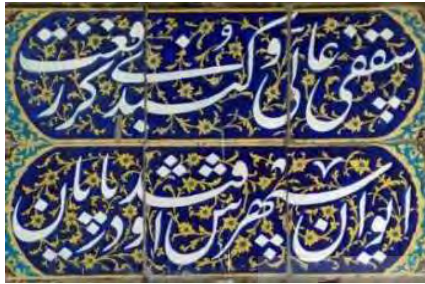 سقفی عالی و گنبدی کز رفعت
ایوان سپهرش اوفتد در پایان